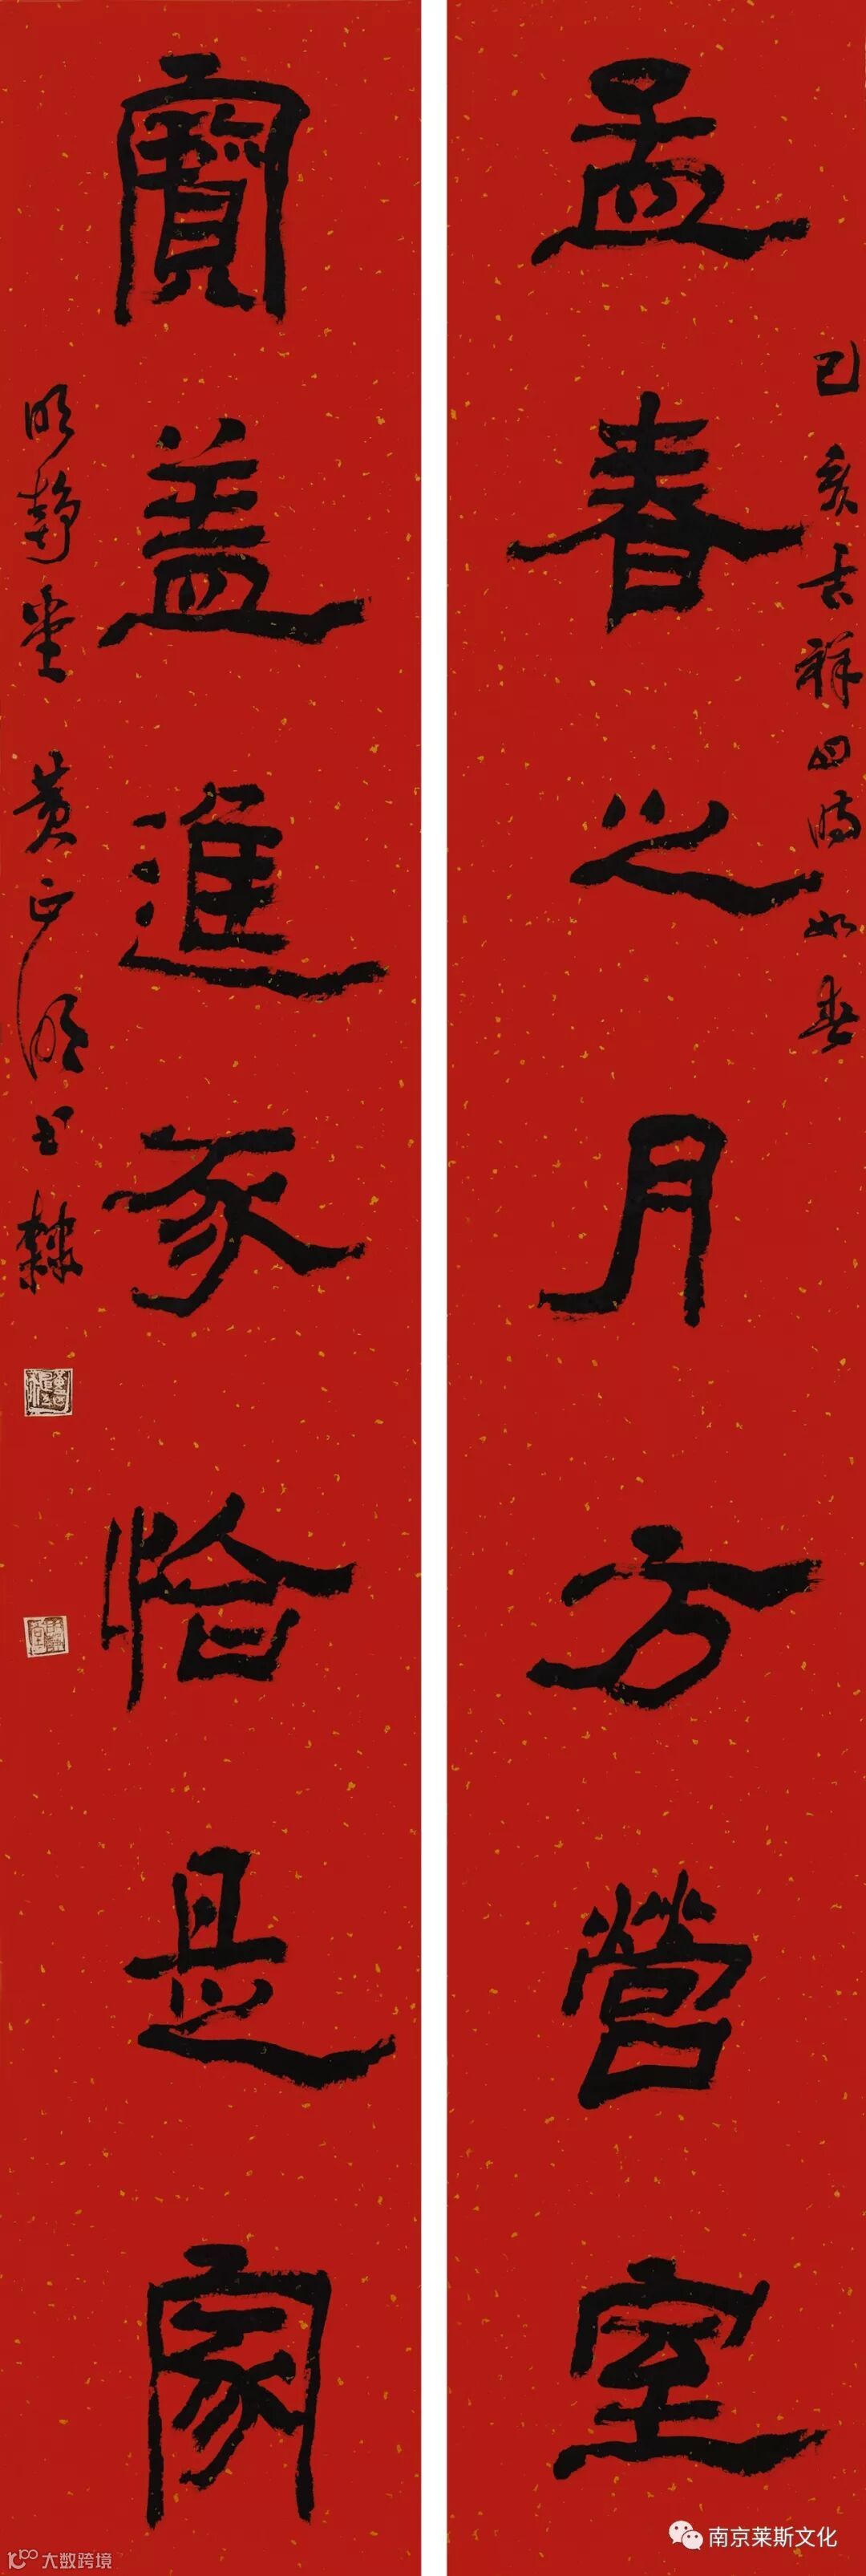 孟春之月方營室
己亥吉祥四時如春
寶盖進豕恰是家
明靜堂 黄正明書隸
南京莱斯文化
大数跨境